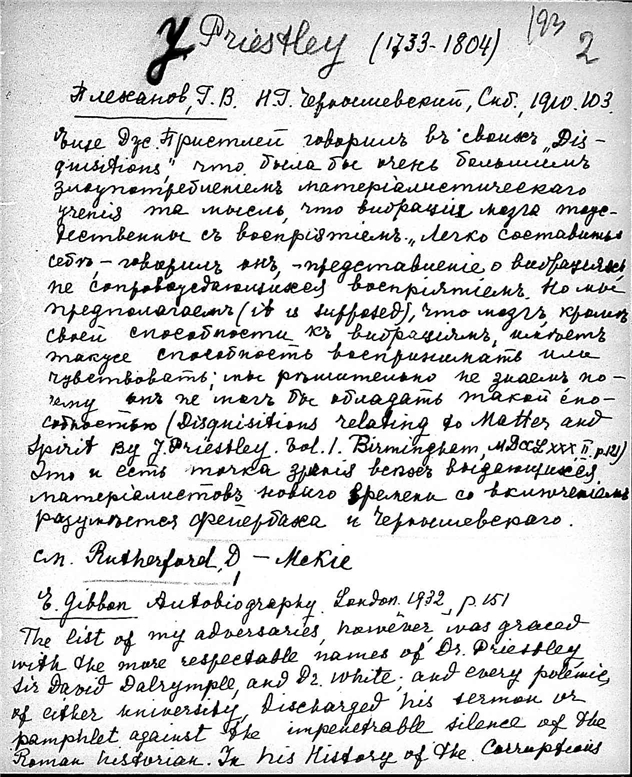 J. Priestley (1733-1804) 193 2
Плеханов, Г. В. Н. Г. Чернышевский, Спб., 1910. 103.
Еще Дж. Пристлей говорилъ въ своихъ „Dis-
quisitions", что была бы очень большимъ
злоупотребленіемъ матеріалистическаго
ученія та мысль, что вибрація мозга тоже-
дественны съ воспріятіемъ. „Легко составить
себѣ – говорилъ онъ, – представленіе о вибраціяхъ
не сопровождающихся воспріятіемъ. Но мы
предполагаемъ (it is supposed), что мозгъ, кромѣ
своей способности къ вибраціямъ, имѣетъ
также способность воспринимать или
чувствовать; мы рѣшительно не знаемъ по-
чему онъ не могъ бы обладать такой спо-
собностью (Disquisitions relating to Matter and
Spirit By J. Priestley. Vol. 1. Birmingham, MDCCLXXXII. p. 121)
Это и есть точка зрѣнія всѣхъ выдающихся
матеріалистовъ новаго времени со включеніемъ
разумѣется Фейербаха и Чернышевскаго.
см. Rutherford, D, – McKie
E. Gibbon Autobiography. London. 1932, p. 151
The list of my adversaries, however, was graced
with the more respectable names of Dr. Priestley,
Sir David Dalrymple, and Dr. White; and every polemic,
of either university, discharged his sermon or
pamphlet against the impenetrable silence of the
Roman historian. In his History of the Corruptions